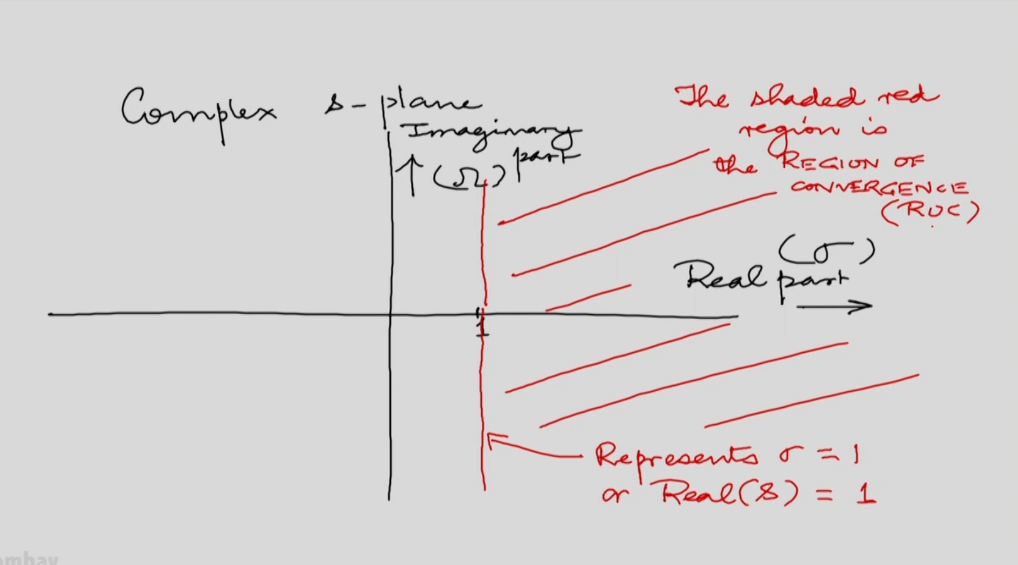 Complex s-plane
Imaginary
part
↑ (Ω)
The shaded red
region is
the REGION OF
CONVERGENCE
(ROC)
(σ)
Real part
→
1
Represents σ = 1
or Real(s) = 1